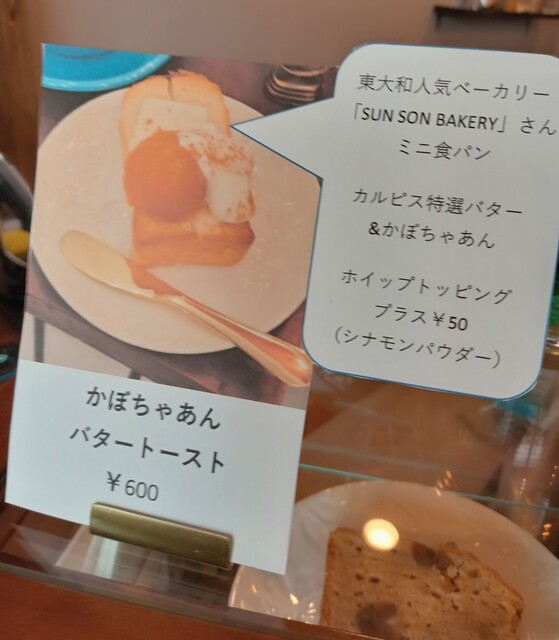 東大和人気ベーカリー
「SUN SON BAKERY」さん
ミニ食パン
カルピス特選バター
&かぼちゃあん
ホイップトッピング
プラス￥50
（シナモンパウダー）
かぼちゃあん
バタートースト
￥600